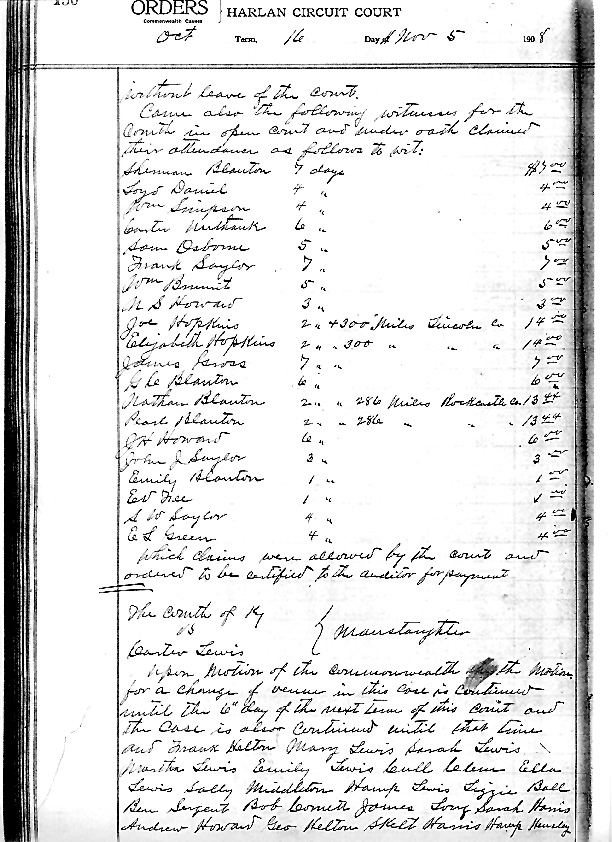 ORDERS
Commonwealth Causes
HARLAN CIRCUIT COURT
Oct Term, 16 Day, Nov 5 1908
without leave of the court.
Came also the following witnesses for the
Comth in open court and under oath claimed
their attendance as follows to wit:
Sherman Blanton 7 days $7.00
Loyd Daniel 4 " 4.00
Wm Simpson 4 " 4.00
Carter 6 " 6.00
Sam Osborne 5 " 5.00
Frank Saylor 7 " 7.00
Wm 5 " 5.00
M S Howard 3 " 3.00
Joe Hopkins 2 " & 300 Miles Lincoln Co 14.00
Elizabeth Hopkins 2 " " 300 " " " 14.00
James 7 " " 7.00
G C Blanton 6 " 6.00
Nathan Blanton 2 " " 286 Miles Rockcastle Co. 13.44
Pearl Blanton 2 " " 286 " " " 13.44
J H Howard 6 " 6.00
John J Saylor 3 " 3.00
Emily Blanton 1 " 1.00
Ed 1 " 1.00
S W Saylor 4 " 4.00
E S Green 4 " 4.00
Which claims were allowed by the court and
ordered to be certified to the auditor for payment
The Comth of Ky
vs } Manslaughter
Carter Lewis
Upon Motion of the Commonwealth the Motion
for a change of venue in this case is continued
until the 6" day of the next term of this court and
the case is also continued until that time
and Frank Helton Mary Lewis Sarah Lewis
Martha Lewis Emily Lewis Cull Clem Ella
Lewis Sally Middleton Hamp Lewis Lizzie Ball
Ben Sergent Bob Cornett James Long Sarah Harris
Andrew Howard Geo Helton Skelt Harris Hamp Hensley